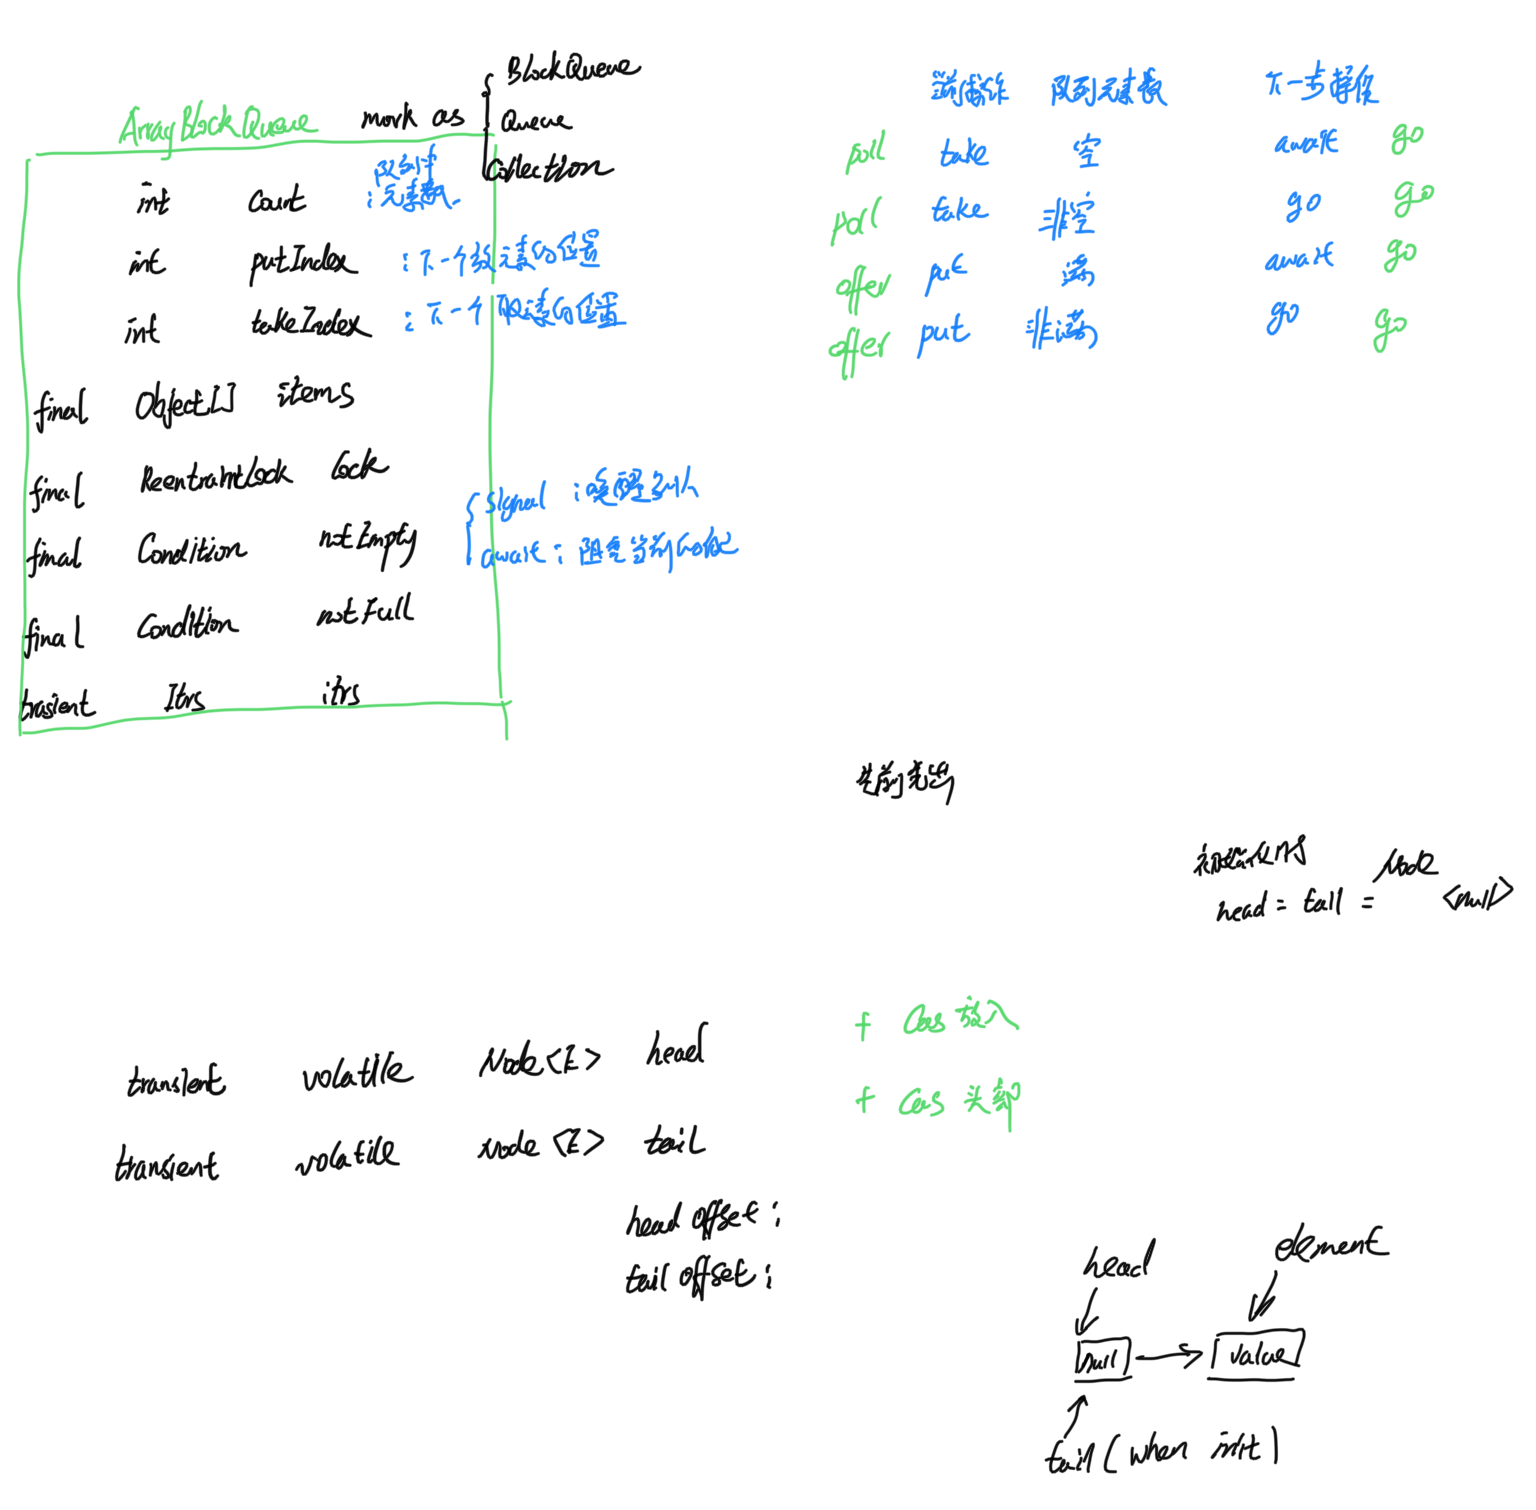 ArrayBlockQueue mark as
BlockQueue
Queue
Collection
int count : 队列中元素数.
int putIndex : 下一个放元素的位置
int takeIndex : 下一个取元素的位置
final Object[] items
final ReentrantLock lock
final Condition notEmpty
signal : 唤醒
await : 阻塞当前
final Condition notFull
trasient Itrs itrs
端操作 队列元素数 下一步操作
poll take 空 await go
poll take 非空 go go
offer put 满 await go
offer put 非满 go go
初始化时
head = tail = Node <null>
transient volatile Node<E> head
transient volatile Node<E> tail
head offset ;
tail offset ;
+ Cas 放入
+ Cas 头部
head
element
null
value
tail (when init)